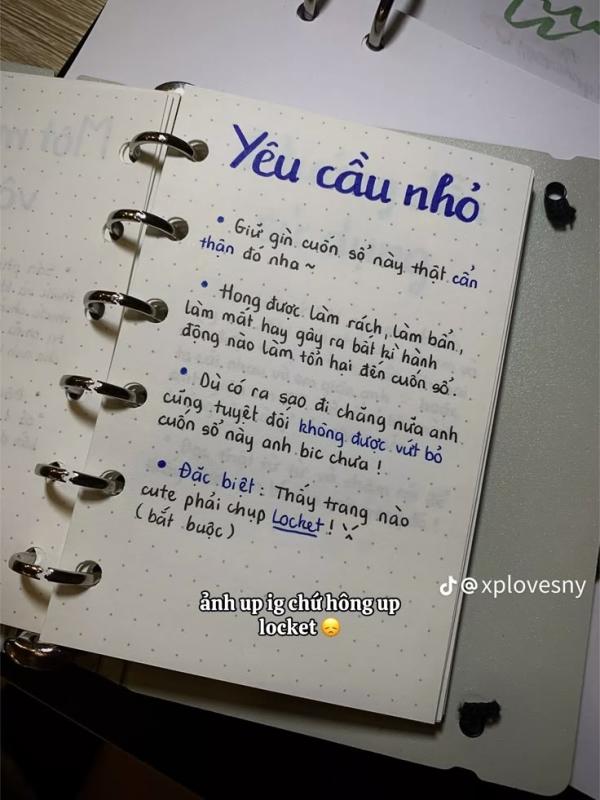 Yêu cầu nhỏ
• Giữ gìn cuốn sổ này thật cẩn
thận đó nha ~
• Hong được làm rách, làm bẩn,
làm mất hay gây ra bất kì hành
động nào làm tổn hại đến cuốn sổ.
• Dù có ra sao đi chăng nữa anh
cũng tuyệt đối không được vứt bỏ
cuốn sổ này anh bic chưa !
• Đặc biệt : Thấy trang nào
cute phải chụp Locket !
( bắt buộc )
@xplovesny
ảnh up ig chứ hông up
locket 😞